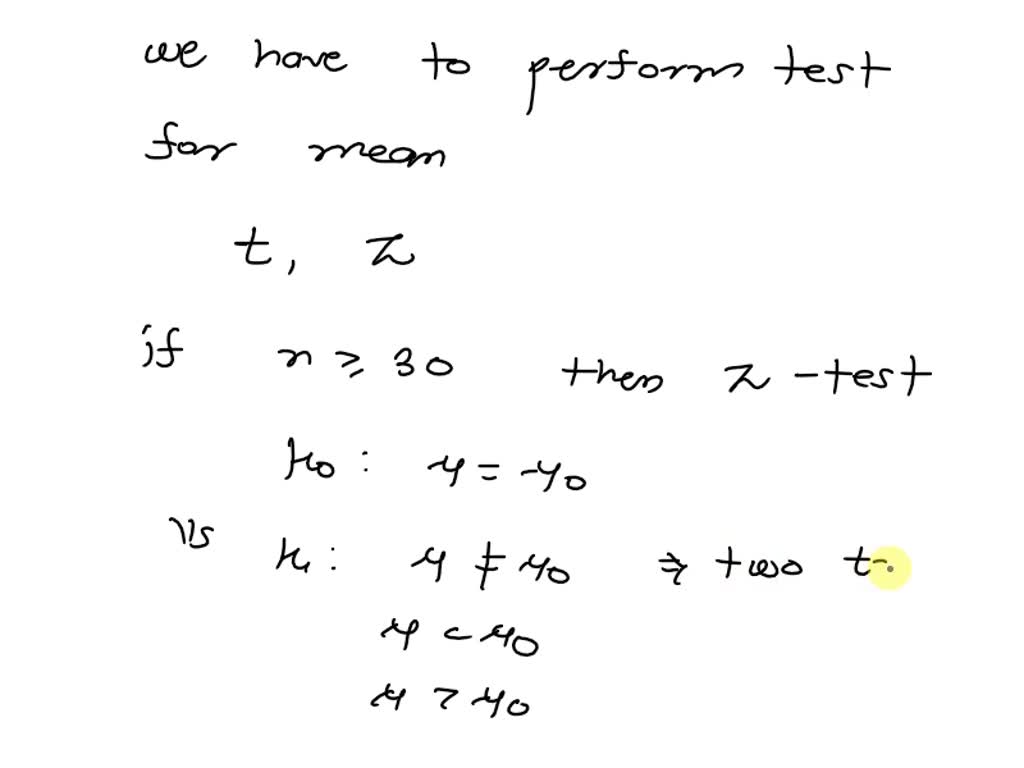 we have to perform test
for mean
t, z
if n ≥ 30 then z-test
H₀ : μ = μ₀
Vs H₁ : μ ≠ μ₀ ⇒ two t
μ < μ₀
μ > μ₀